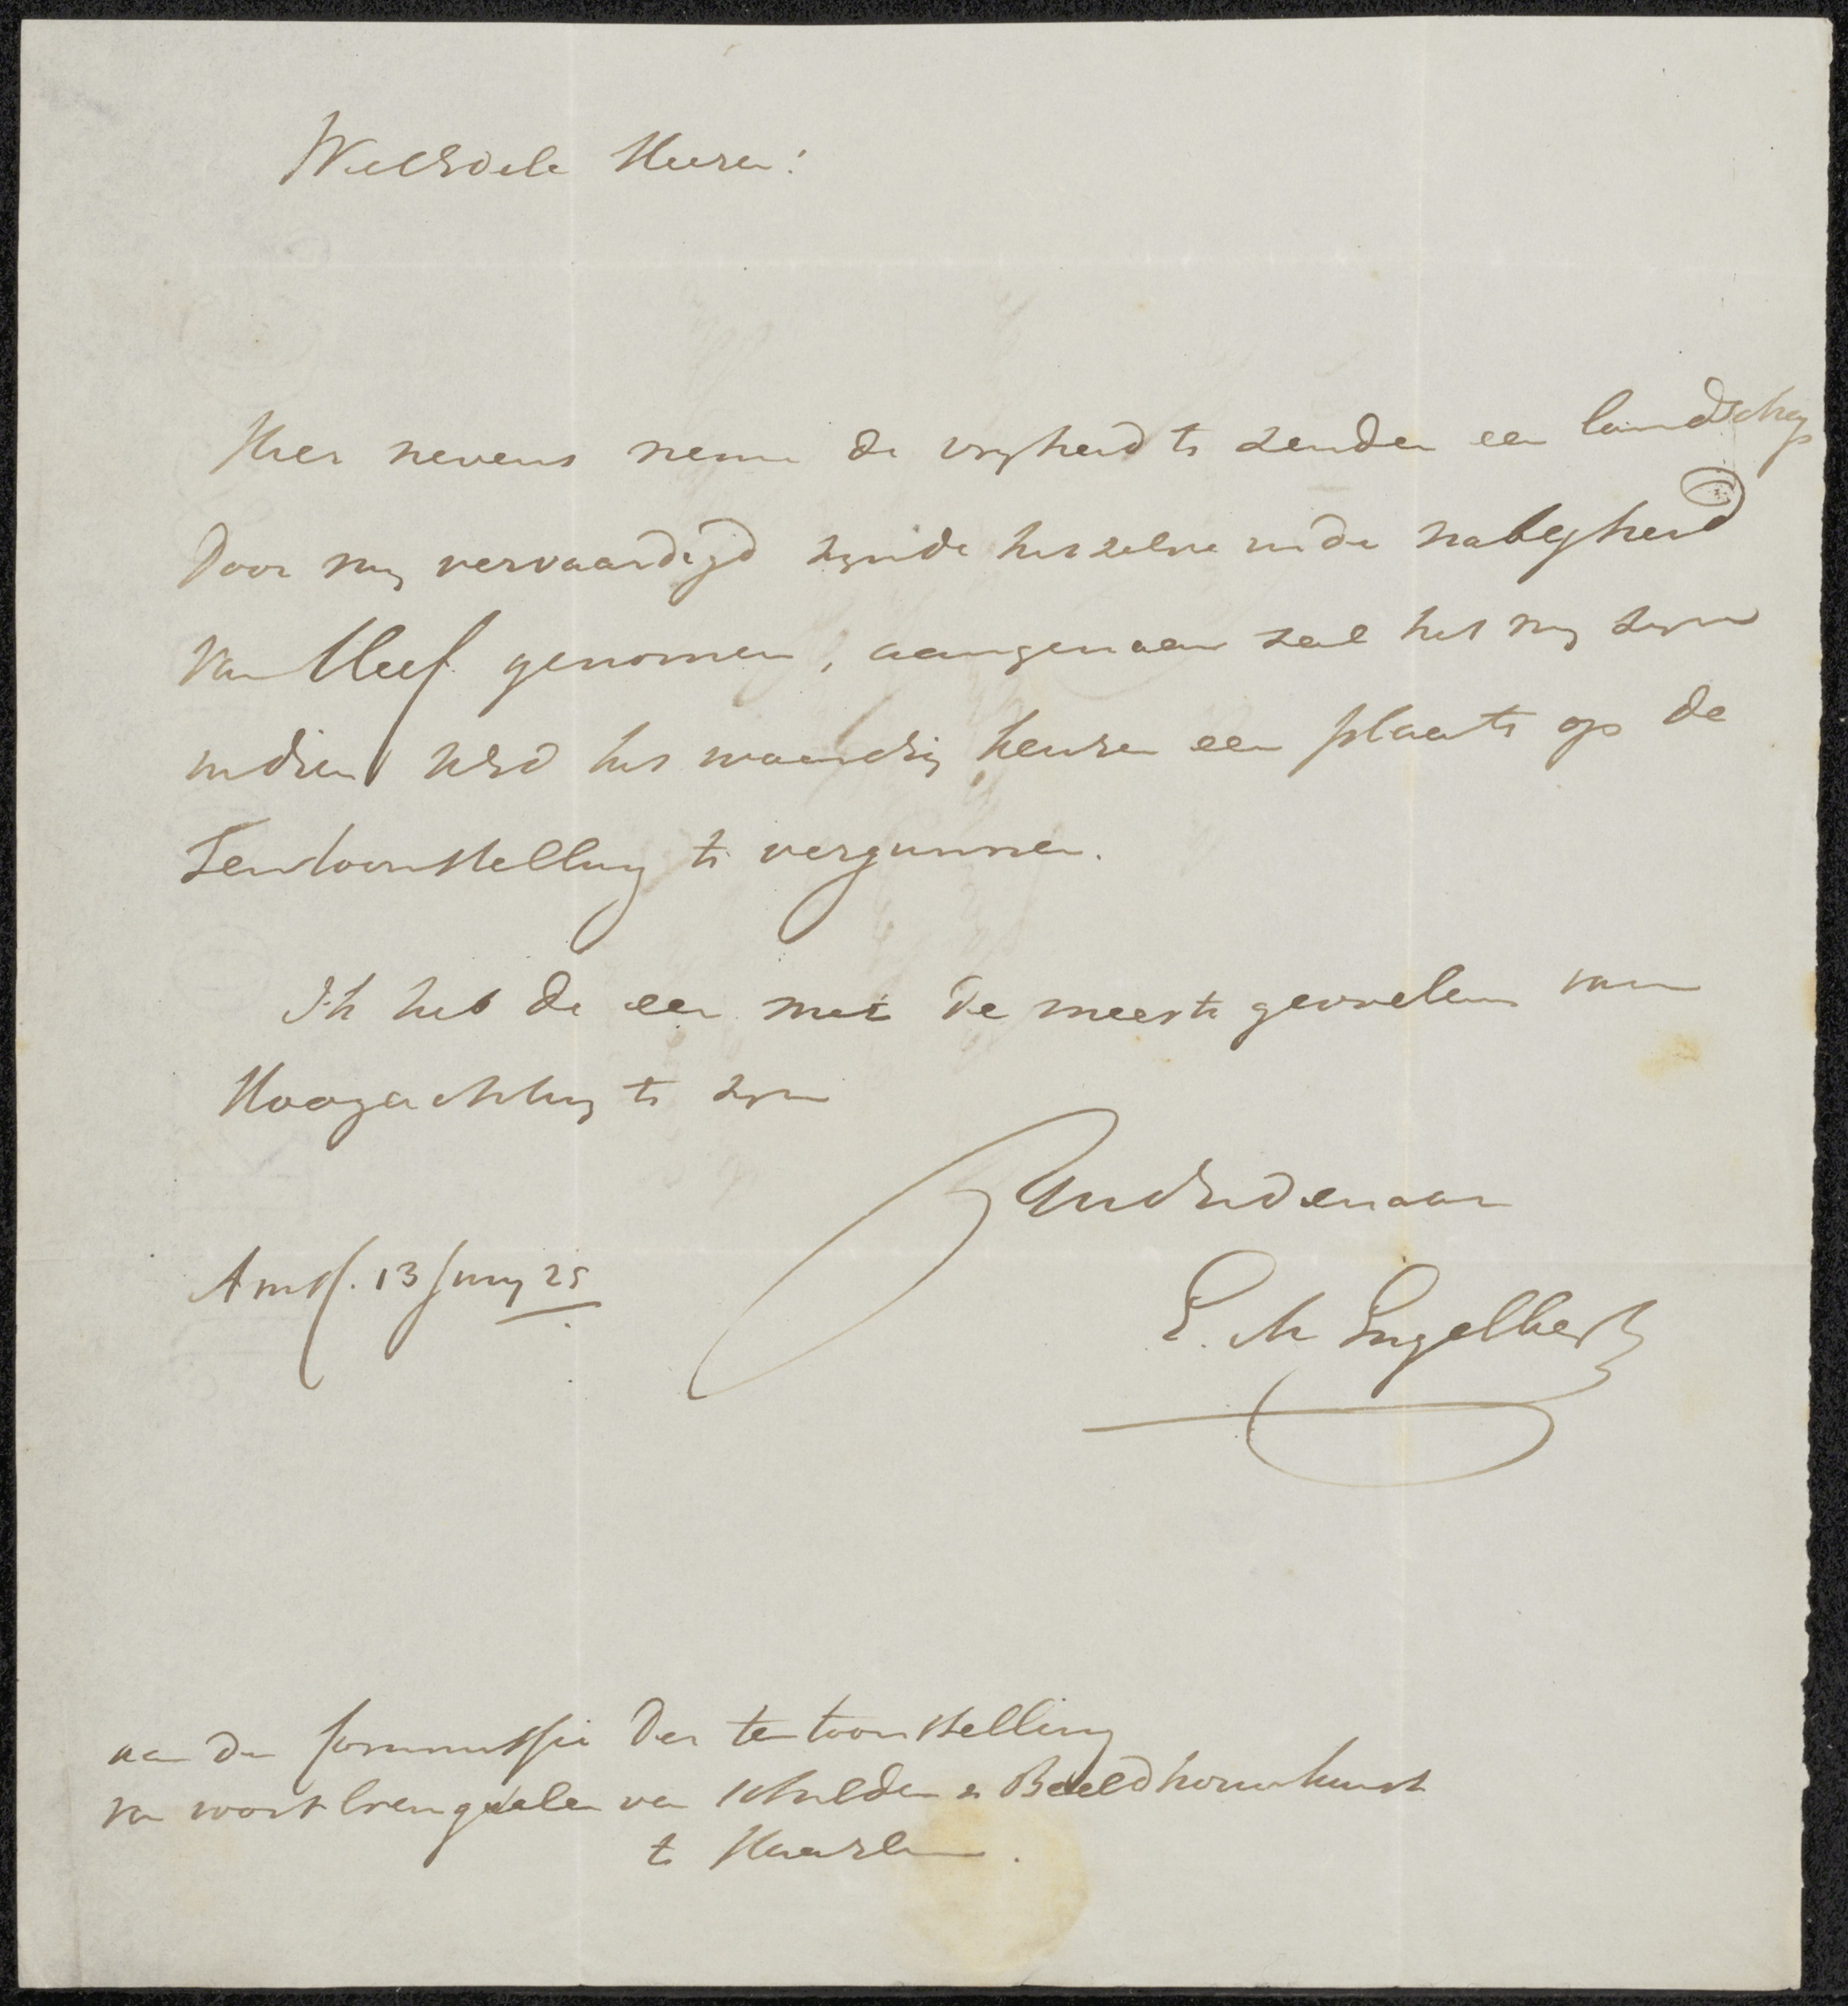 WelEdele Heeren!
Hier nevens neem de vryheid te zenden een landschap
door my vervaardigd zynde het zelve in de nabyheid
van Kleef genomen, aangenaam zal het my zyn
indien UEd het waardig keuren een plaats op de
Tentoonstelling te vergunnen.
Ik heb de eer met de meeste gevoelens van
Hoogachting te zyn
UwEd Dienaar
Amst. 13 Juny 25
E. M Engelberts
aan de Commissie der tentoonstelling
van voortbrengselen van schilder & Beeldhouwkunst
te Haarlem.